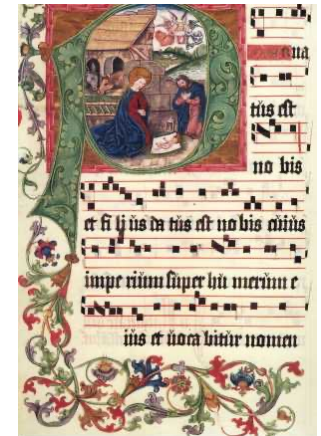 P
na
tus est
no bis
et fi li us da tus est no bis cuius
impe rium super hu merum e
ius et uoca bitur nomen